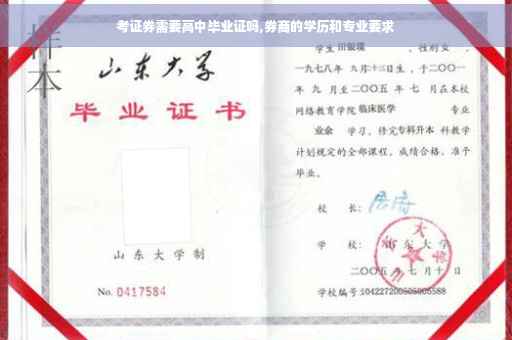 考证券需要高中毕业证吗,券商的学历和专业要求
样本
山东大学
毕业证书
山东大学制
No. 0417584
学生 田银瑞 ，性别 女 ，
一九七八年 九月十三日生，于二〇〇一
年 九 月至二〇〇五 年 七 月在本校
网络教育学院 临床医学 专业
业余 学习，修完 专科升本 科教学
计划规定的全部课程，成绩合格，准予
毕业。
校 长：
学 校： 山东大学
二〇〇五 年 七 月 十 日
学校编号: